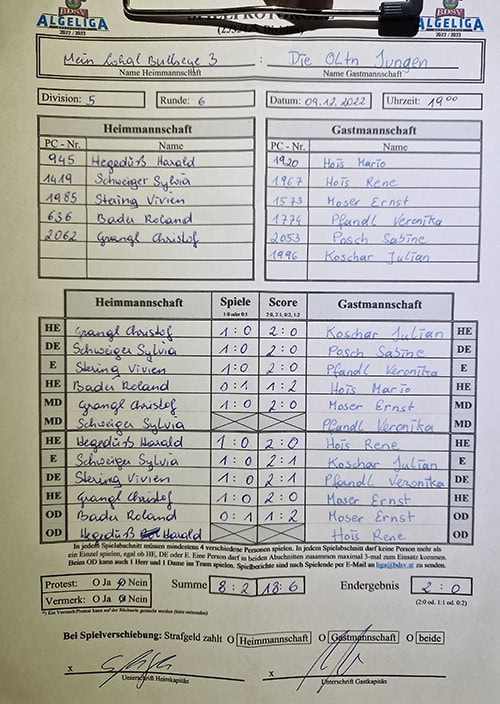 BDSV
ALGELIGA
2022 / 2023
BDSV
ALGELIGA
2022 / 2023
Mein Lokal Bullseye 3 : Die OLtn Jungen
Name Heimmannschaft Name Gastmannschaft
Division: 5 Runde: 6 Datum: 09.12.2022 Uhrzeit: 19⁰⁰
Heimmannschaft Gastmannschaft
PC - Nr. Name PC - Nr. Name
945 Hegedüß Harald 1920 Hois Mario
1419 Schweiger Sylvia 1967 Hois Rene
1985 Stering Vivien 1573 Moser Ernst
636 Bader Roland 1774 Pfandl Veronika
2062 Grangl Christof 2053 Posch Sabine
1996 Koschar Julian
Heimmannschaft Spiele Score Gastmannschaft
1:0 oder 0:1 2:0, 2:1, 0:2, 1:2
HE Grangl Christof 1:0 2:0 Koschar Julian HE
DE Schweiger Sylvia 1:0 2:0 Posch Sabine DE
E Stering Vivien 1:0 2:0 Pfandl Veronika E
HE Bader Roland 0:1 1:2 Hois Mario HE
MD Grangl Christof 1:0 2:0 Moser Ernst MD
MD Schweiger Sylvia Pfandl Veronika MD
HE Hegedüß Harald 1:0 2:0 Hois Rene HE
E Schweiger Sylvia 1:0 2:1 Koschar Julian E
DE Stering Vivien 1:0 2:1 Pfandl Veronika DE
HE Grangl Christof 1:0 2:0 Moser Ernst HE
OD Bader Roland 0:1 1:2 Moser Ernst OD
OD Hegedüß Harald Hois Rene OD
In jedem Spielabschnitt müssen mindestens 4 verschiedene Personen spielen. In jedem Spielabschnitt darf keine Person mehr als
ein Einzel spielen, egal ob HE, DE oder E. Eine Person darf in beiden Abschnitten zusammen maximal 3-mal zum Einsatz kommen.
Beim OD kann auch 1 Herr und 1 Dame im Team spielen. Spielberichte sind nach Spielende per E-Mail an liga@bdsv.at zu senden.
Protest: O Ja O Nein Summe 8:2 18:6 Endergebnis 2:0
Vermerk: O Ja O Nein (2:0 od. 1:1 od. 0:2)
*) Ein Vermerk/Protest kann auf der Rückseite gemacht werden (bitte ankreuzen)
Bei Spielverschiebung: Strafgeld zahlt O Heimmannschaft O Gastmannschaft O beide
x x
Unterschrift Heimkapitän Unterschrift Gastkapitän